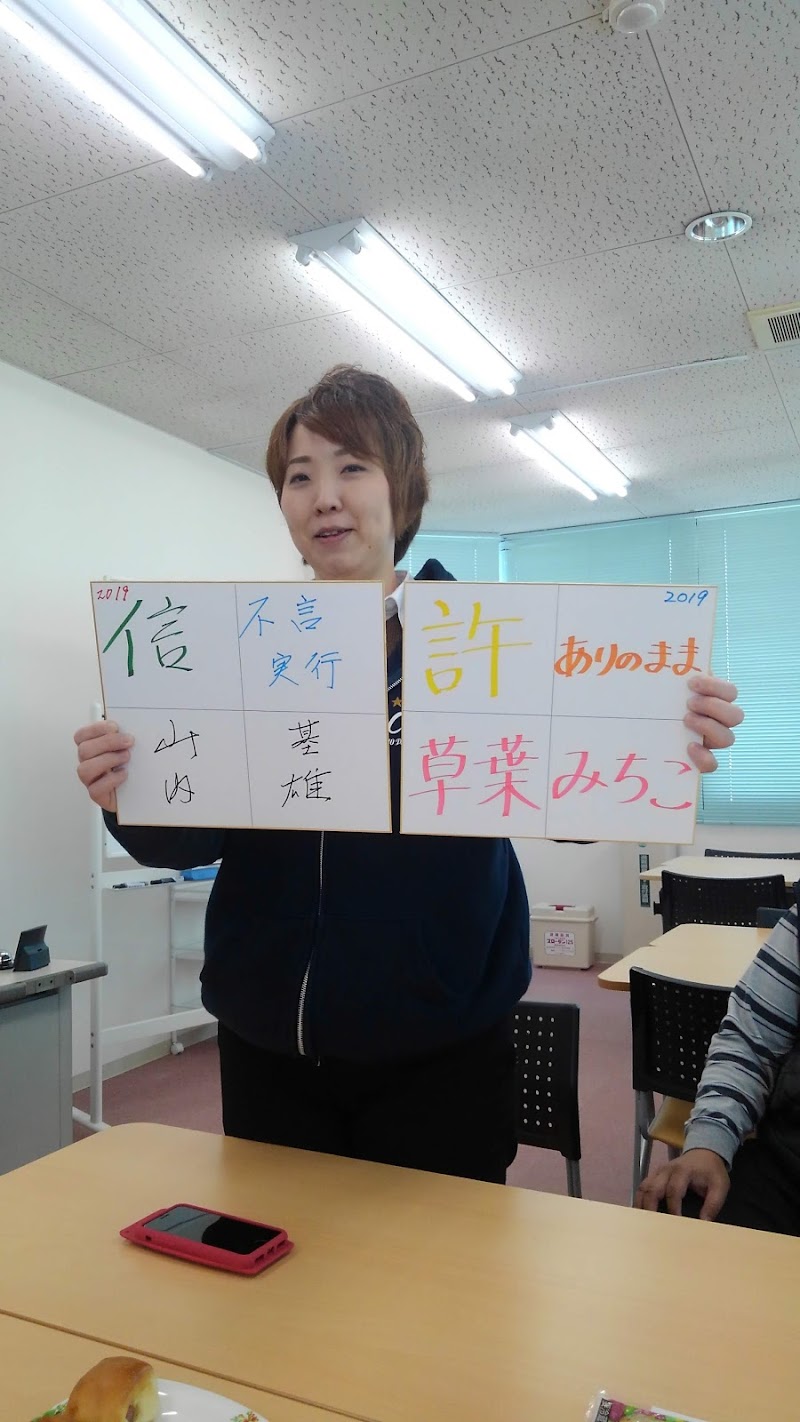 2019
信
不言
実行
山内
基雄
2019
許
ありのまま
草葉
みちこ